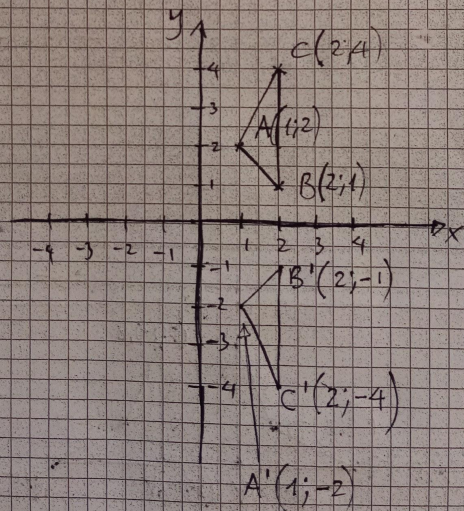 y
C(2;4)
4
3
A(1;2)
2
B(2;1)
1
x
-4 -3 -2 -1 1 2 3 4
-1
B'(2;-1)
-2
-3
-4
C'(2;-4)
A'(1;-2)